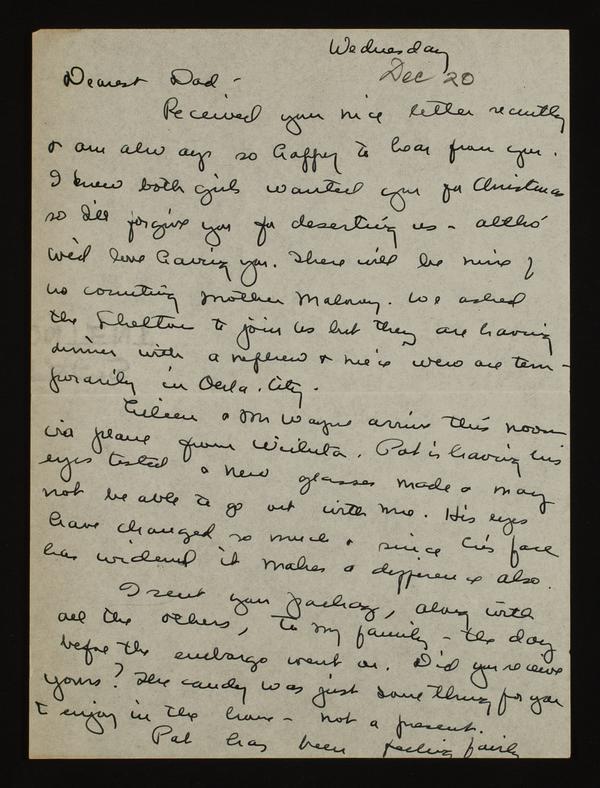 Wednesday
Dec 20
Dearest Dad -
Received your nice letter recently
& am always so happy to hear from you.
I knew both girls wanted you for Christmas
so I'll forgive you for deserting us - altho'
we'd love having you. There will be nine of
us counting Mother Maloney. We asked
the Sheltons to join us but they are having
dinner with a nephew & niece who are tem-
porarily in Okla. City.
Eileen & Mr Wayne arrive this noon
via plane from Wichita. Pat is having his
eyes tested & new glasses made & may
not be able to go out with me. His eyes
have changed so much & since his face
has widened it makes a difference also.
I sent your package, along with
all the others, to my family - the day
before the embargo went on. Did you receive
yours? The candy was just something for you
to enjoy in the house - not a present.
Pat has been feeling fairly